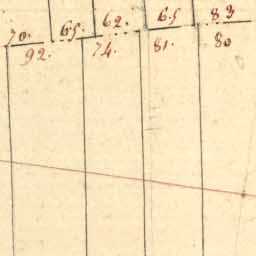 70. 65. 62. 65 83
92. 74. 81. 80